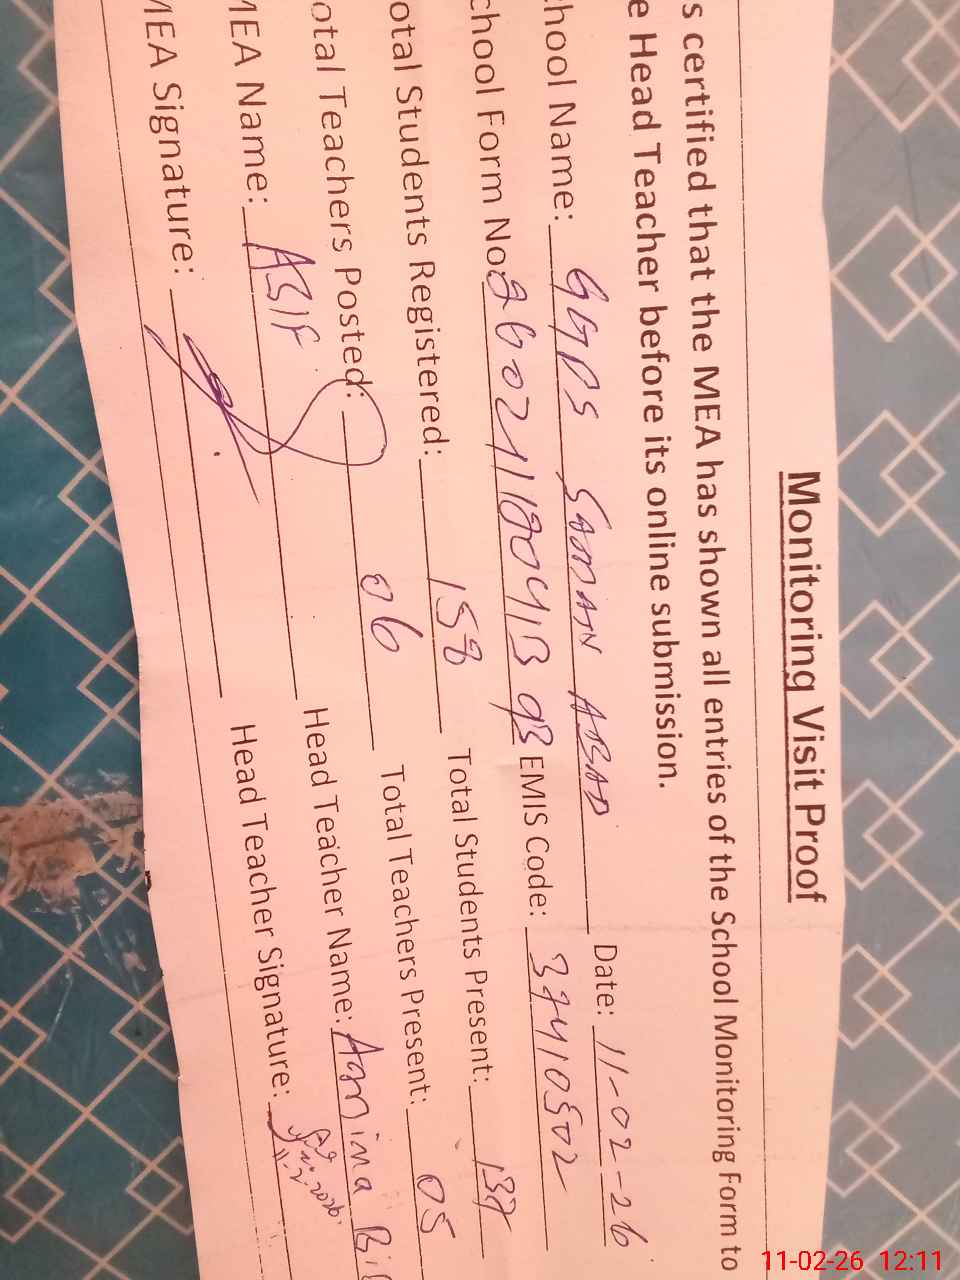 Monitoring Visit Proof
s certified that the MEA has shown all entries of the School Monitoring Form to
e Head Teacher before its online submission.
hool Name: GGPS SAMAN ABAD Date: 11-02-26
chool Form No: EMIS Code: 37410502
otal Students Registered: 158 Total Students Present: 137
otal Teachers Posted: 06 Total Teachers Present: 05
MEA Name: ASIF Head Teacher Name: Aamina Bi
MEA Signature: Head Teacher Signature:
11-02-26 12:11